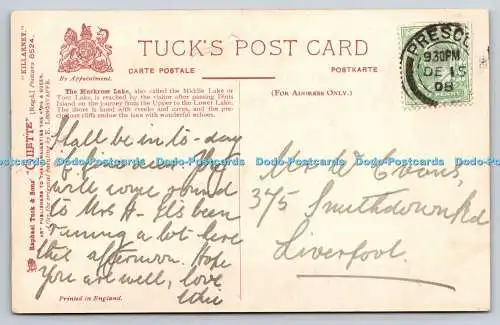 TUCK'S POST CARD
By Appointment.
CARTE POSTALE
POSTKARTE
The Muckross Lake, also called the Middle Lake or
Torc Lake, is reached by the visitor after passing Dinis
Island on the journey from the Upper to the Lower Lake.
The shore is lined with creeks and caves, and the pre-
cipitous cliffs endow the lass with wonderful echoes.
(FOR ADDRESS ONLY.)
Shall be in to-day
if fine
will come round
to Mrs H- It's been
raining a lot here
this afternoon. Hope
you are well, love
Mr W Evans,
375 Smithdown Rd
Liverpool.
PRESCOT
9 30 PM
DE 15
08
"KILLARNEY."
Raphael Tuck & Sons' "OILETTE"
[Regd.] Postcard 8524.
ART PUBLISHERS TO THEIR MAJESTIES THE KING & QUEEN.
Printed in England.
Dodo-Postcards Dodo-Postcards Dodo-Postcards